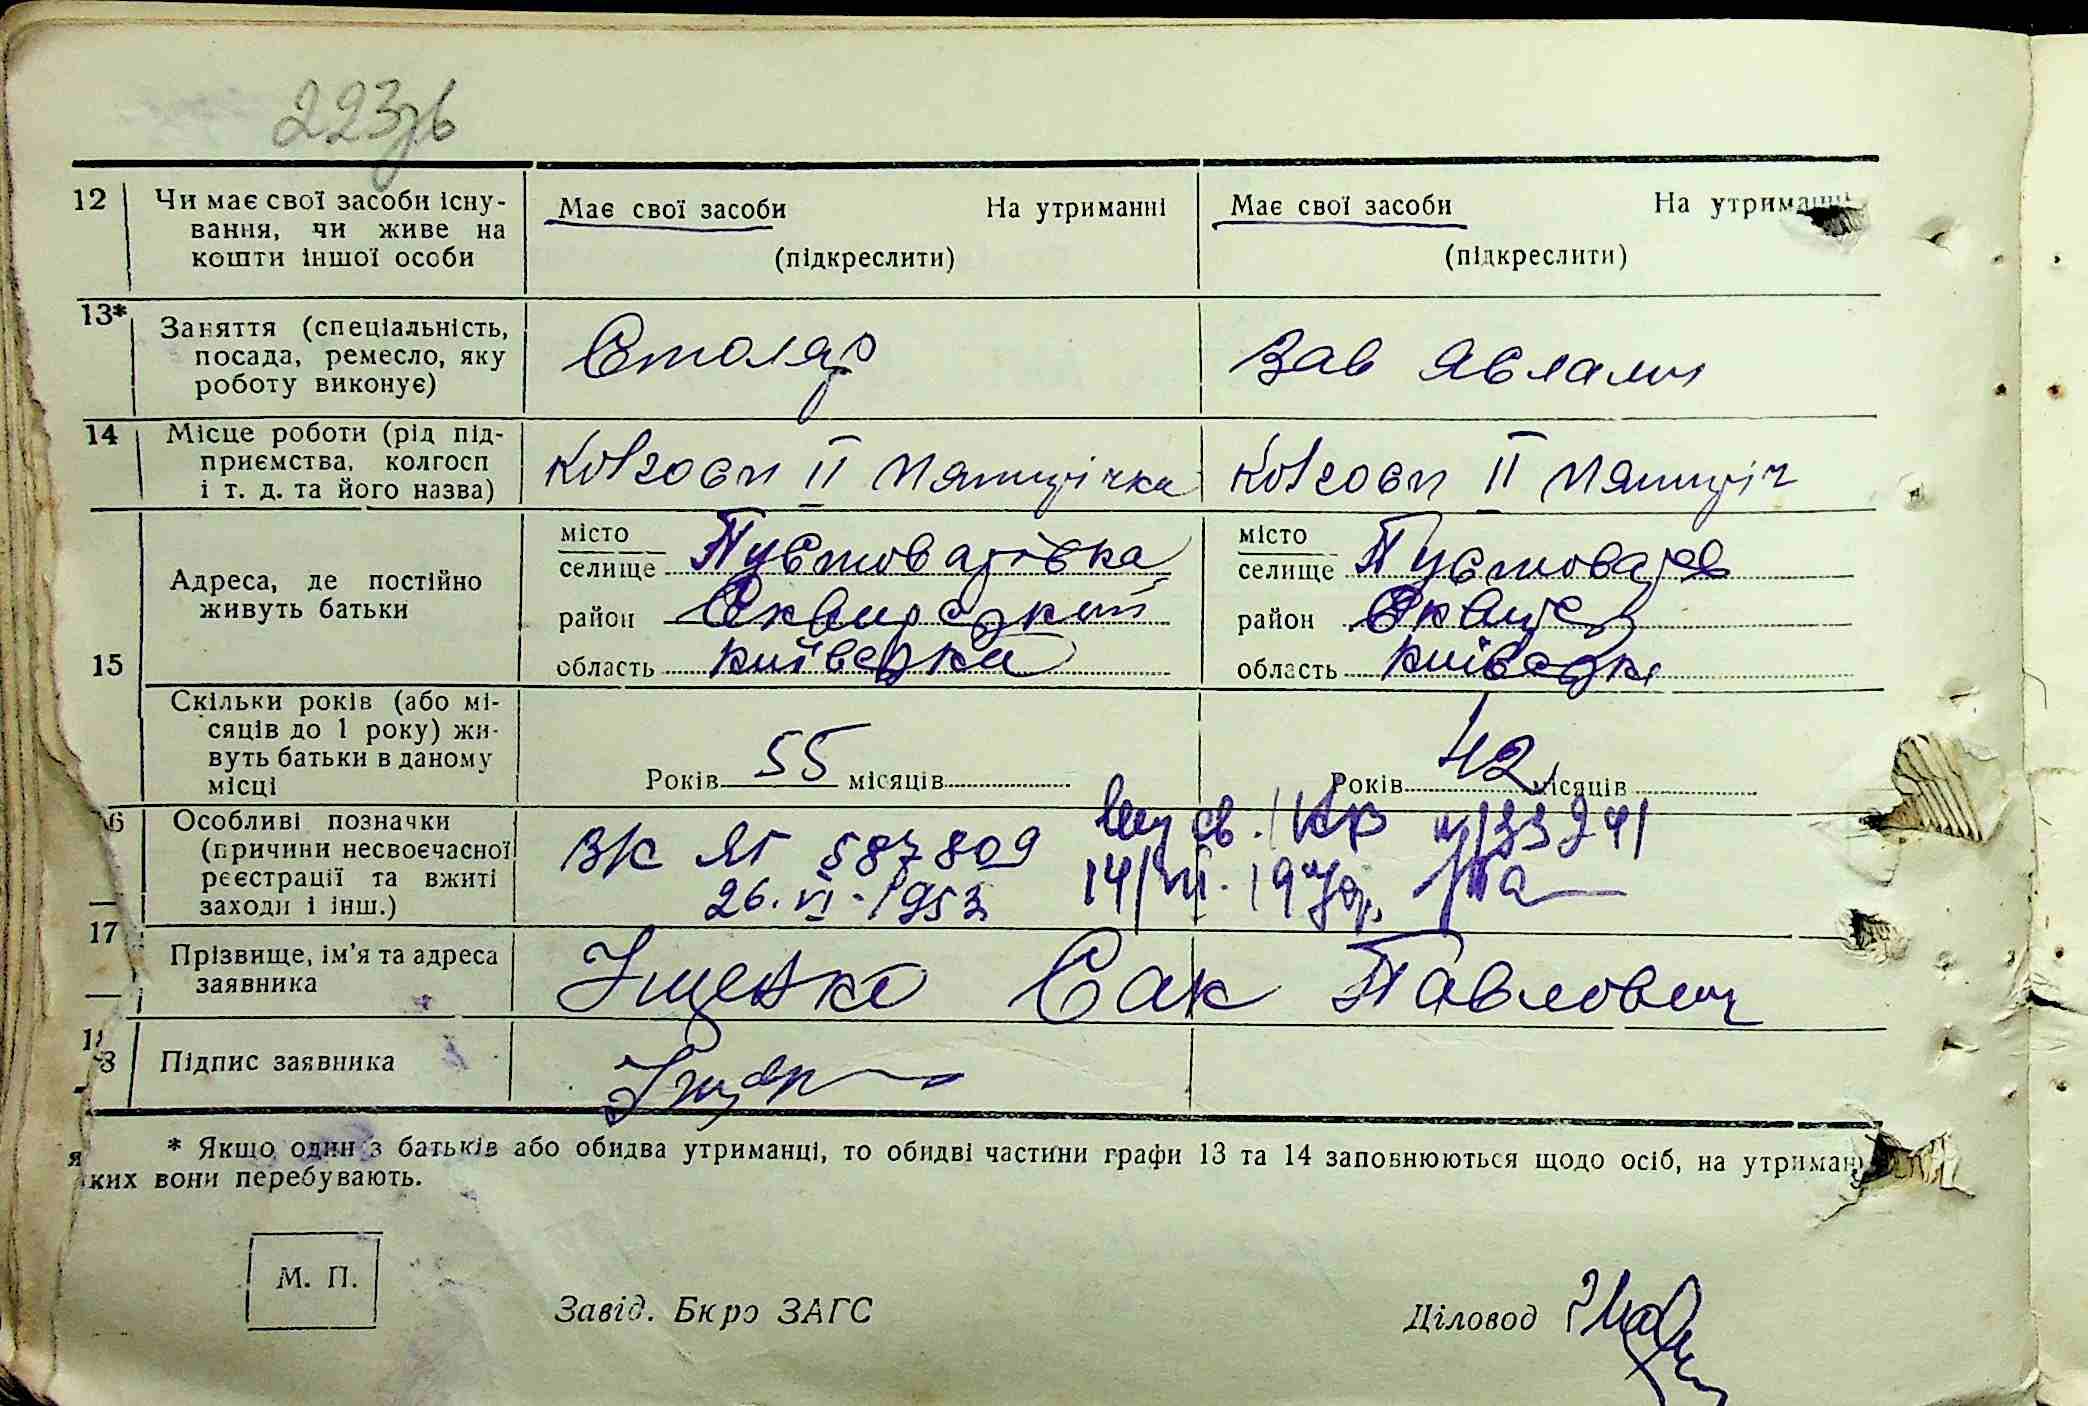 223зв
12 Чи має свої засоби існу-
вання, чи живе на
кошти іншої особи
Має свої засоби На утриманні
(підкреслити)
Має свої засоби На утриманні
(підкреслити)
13* Заняття (спеціальність,
посада, ремесло, яку
роботу виконує)
Столяр
Зав яслами
14 Місце роботи (рід під-
приємства, колгосп
і т. д. та його назва)
Колгосп II Пятирічка
Колгосп II Пятиріч
15 Адреса, де постійно
живуть батьки
місто
селище Пустоварівка
район Сквирський
область Київська
місто
селище Пустоварів
район Сквирс
область Київська
Скільки років (або мі-
сяців до 1 року) жи-
вуть батьки в даному
місці
Років 55 місяців
Років 42 місяців
16 Особливі позначки
(причини несвоєчасної
реєстрації та вжиті
заходи і інш.)
ЯГ 587809
26.VI.1953
17 Прізвище, ім'я та адреса
заявника
Іщенко Сак Павлович
18 Підпис заявника
* Якщо один з батьків або обидва утриманці, то обидві частини графи 13 та 14 заповнюються щодо осіб, на утриман
яких вони перебувають.
М. П.
Завід. Бюро ЗАГС
Діловод